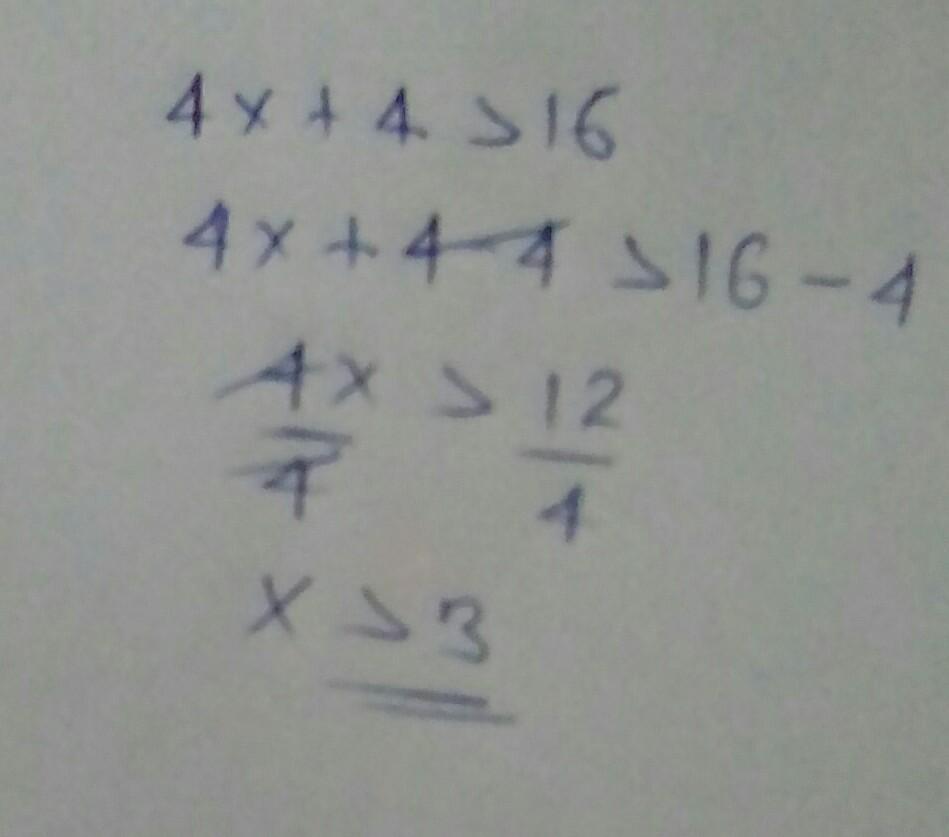 4x + 4 > 16
4x + 4 - 4 > 16 - 4
4x/4 > 12/4
x > 3